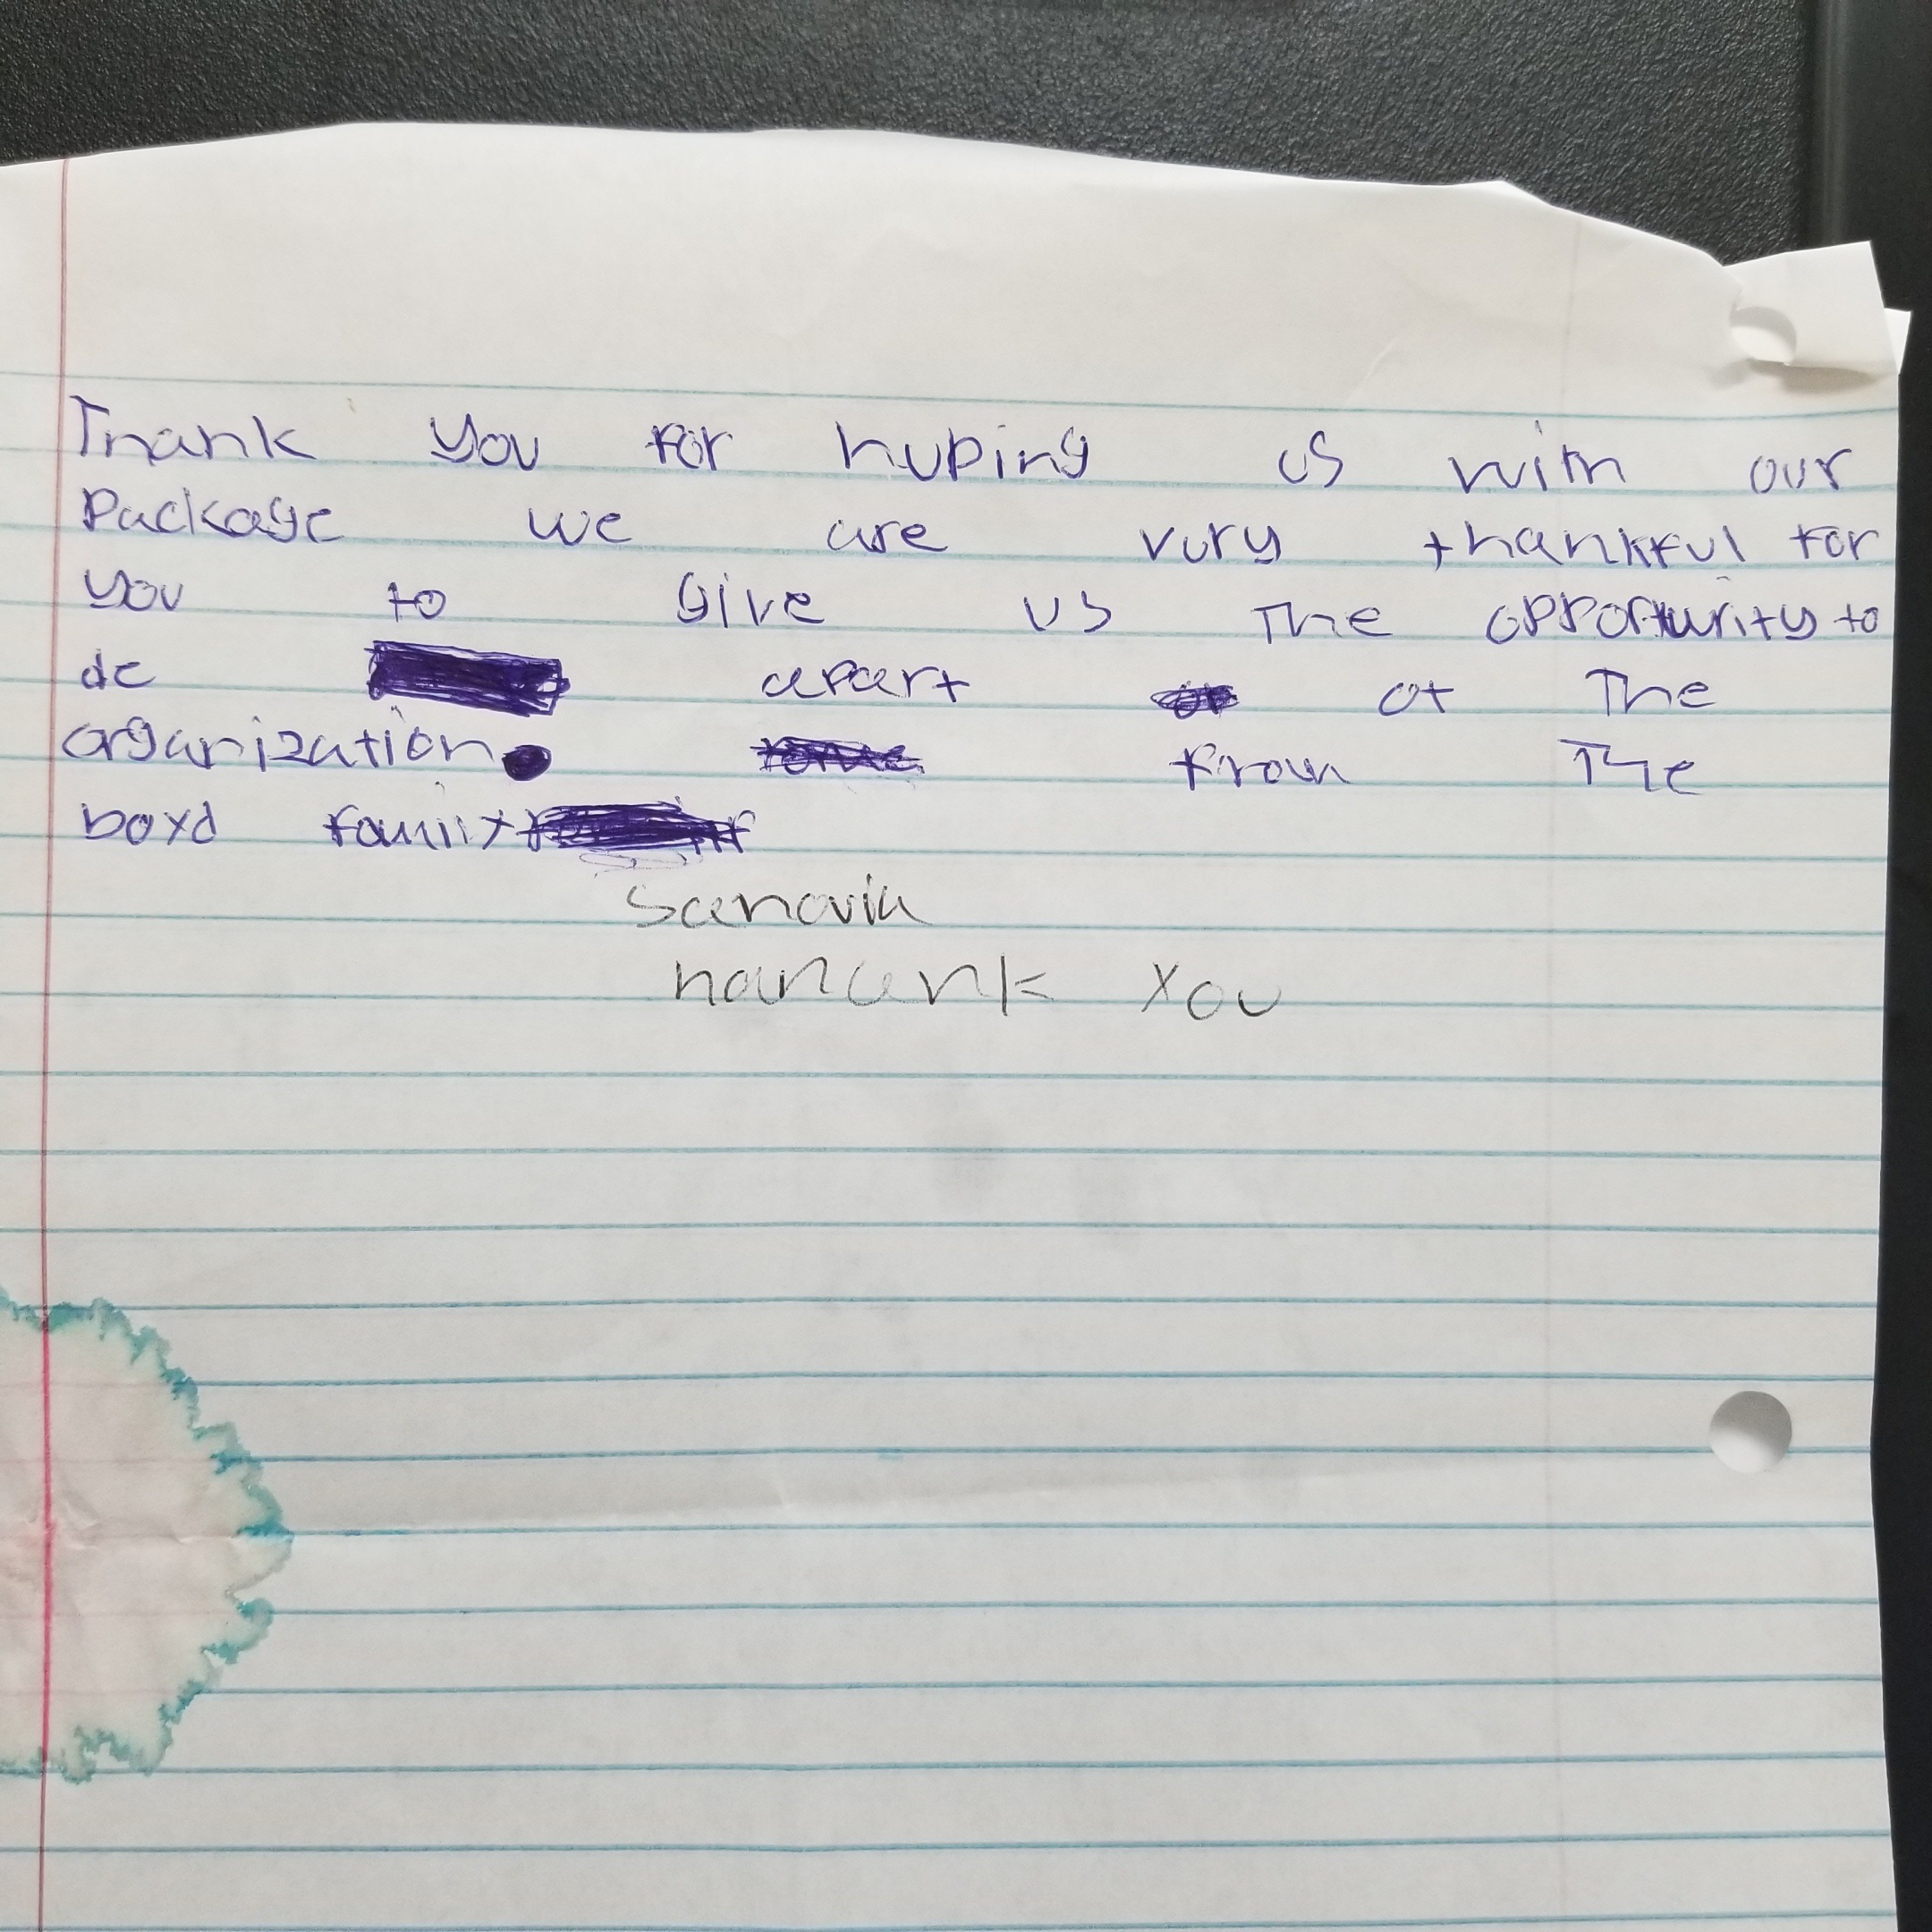 Thank you for huping us with our
Package we are vury thankful for
you to give us The opportunity to
de apart of The
organization. From The
boyd family
Sanovia
hanank You